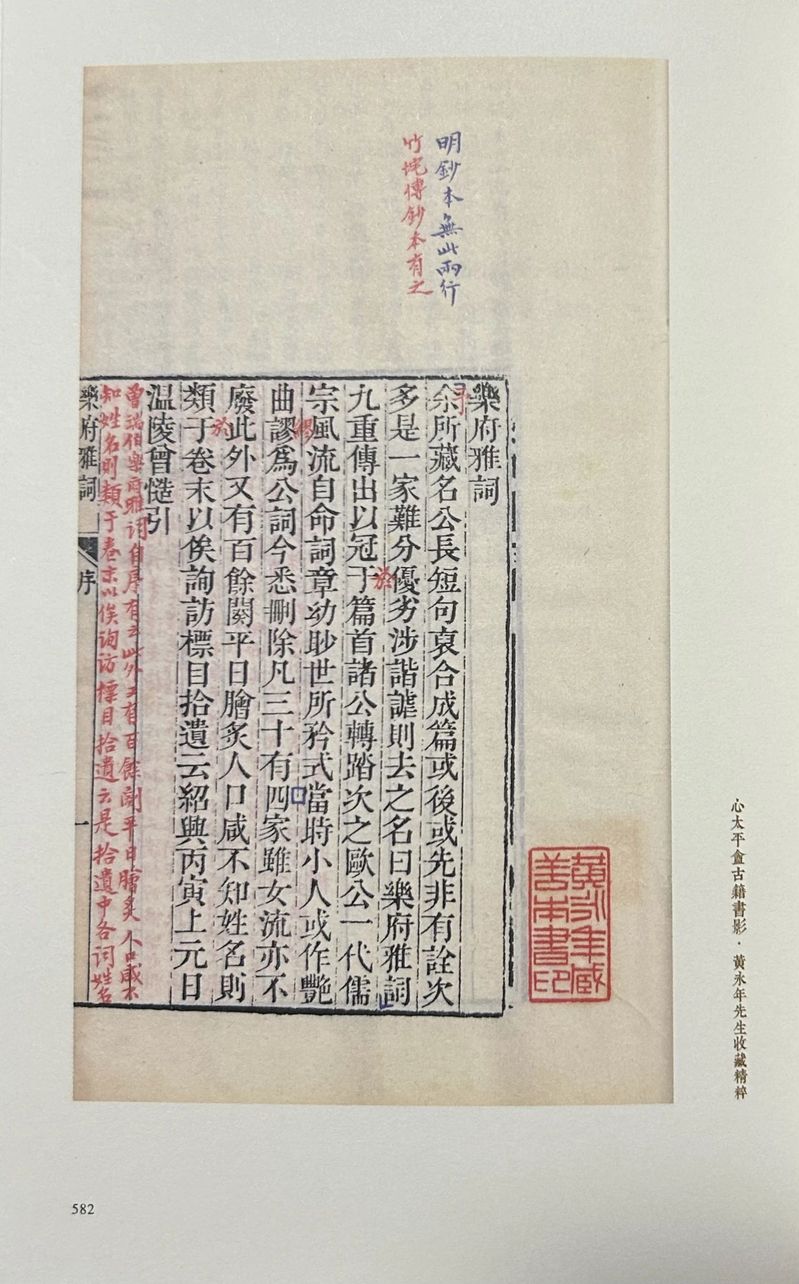 明鈔本無此兩行
竹垞傳鈔本有之
樂府雅詞
余所藏名公長短句裒合成篇或後或先非有詮次
多是一家難分優劣涉諧謔則去之名曰樂府雅詞
九重傳出以冠于篇首諸公轉踏次之歐公一代儒
宗風流自命詞章幼眇世所矜式當時小人或作艷
曲謬為公詞今悉刪除凡三十有四家雖女流亦不
廢此外又有百餘闋平日膾炙人口咸不知姓名則
類于卷末以俟詢訪標目拾遺云紹興丙寅上元日
温陵曾慥引
於
於
曾端伯樂府雅詞自序有云此外又有百餘闋平日膾炙人口咸不
知姓名則類于卷末以俟詢訪標目拾遺云是拾遺中各詞姓名
樂府雅詞
序
一
黃永年藏
善本書印
心太平盦古籍書影·黃永年先生收藏精粹
582